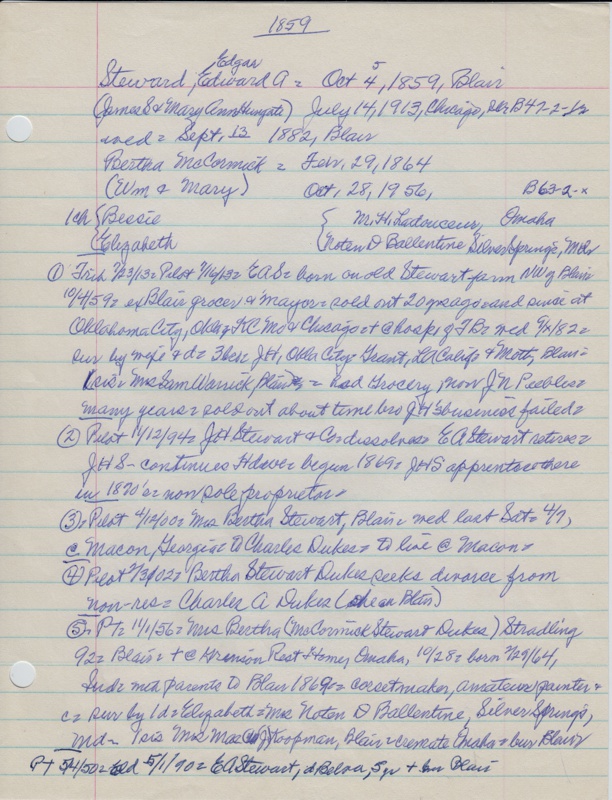 1859
Edgar
Steward, Edward A = Oct 4 5, 1859, Blair
(James S & Mary Ann Hungate) July 14, 1913, Chicago, B47-2-
wed = Sept. 13 1882, Blair
Bertha McCormick = Feb. 29, 1864
(Wm & Mary) Oct, 28, 1956, B63-2-x
1ch { Bessie { M. H. Ladouceur, Omaha
Elizabeth Noten D Ballentine Silver Springs, Md
① Trib 7/23/13 = Pilot 7/16/13 = EAS = born on old Stewart farm NW of Blair
10/4/59 = ex Blair grocer & Mayor = sold out 20 yrs ago and since at
Oklahoma City, Okla & KC Mo & Chicago = + @ hosp of TB = wed 9/ /82 =
sur by wife & d = 3bch JH, Okla City = Grant, LA Calif & Mott, Blair =
1sis = Mrs Sam Warrick, Blair = had grocery, now J N Peebles =
many years = sold out about time bro JH's business failed =
② Pilot 1/12/94 = JH Stewart & Co dissolves = EA Stewart retires =
JHS - continues Hdwe = begun 1869 = JHS apprentice there
in 1870's = now sole proprietor =
③ = Pilot 4/12/00 = Mrs Bertha Stewart, Blair = wed last Sat = 4/7,
@ Macon, Georgia = to Charles Dukes = to live @ Macon =
④ Pilot 7/3/02 = Bertha Stewart Dukes seeks divorce from
non-res = Charles A Dukes (she in Blair)
⑤ = PT = 11/1/56 = Mrs Bertha (McCormick Stewart Dukes) Stradling
92 = Blair = + @ Rest Home, Omaha, 10/28 = born 2/29/64,
Ind = with parents to Blair 1869 = corsetmaker, amateur painter =
c = sur by 1d = Elizabeth = Mrs Noten D Ballentine, Silver Springs,
Md = 1sis Mrs Mae Koopman, Blair = cremate Omaha = bur Blair
PT 5/4/50 = Old 5/1/90 = EA Stewart, d Belva, 5 yr + bur Blair